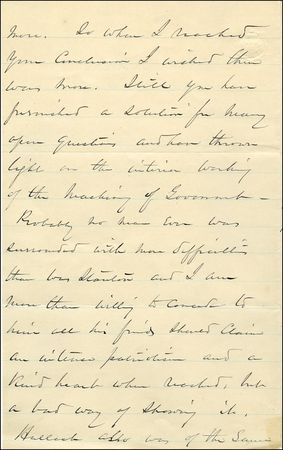 more. So when I reached
your Conclusion I wished there
was more. Still you have
furnished a solution for many
open questions and have thrown
light on the interior working
of the Machinery of Government –
Probably no man ever was
surrounded with more difficulties
than was Stanton and I am
more than willing to concede to
him all his friends should claim
an intense patriotism and a
Kind heart when reached, but
a bad way of showing it.
Halleck also was of the Same